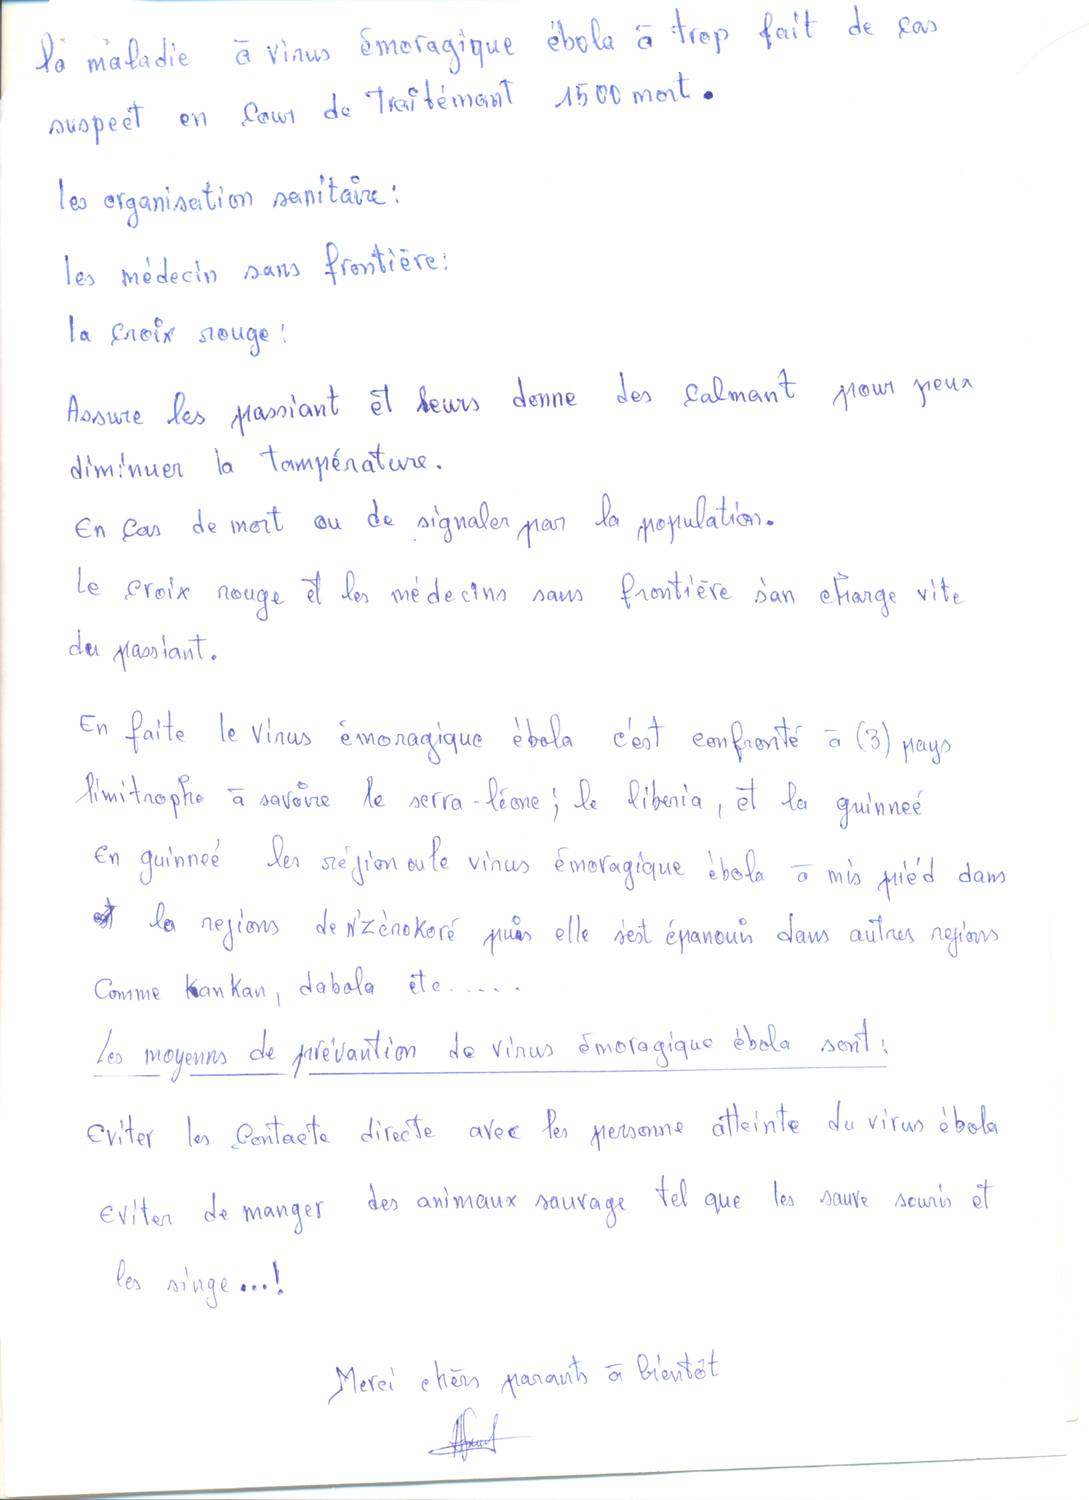 la maladie à virus émoragique ébola à trop fait de cas
suspect en cour de traîtémant 1500 mort.
les organisation sanitaire:
les médecin sans frontière:
la croix rouge:
Assure les passiant et leurs donne des calmant pour peux
diminuer la tampérature.
En cas de mort ou de signaler par la population.
Le croix rouge et les médecins sans frontière s'an charge vite
du passiant.
En faite le virus émoragique ébola c'est confronté à (3) pays
limitrophe à savoire le serra-léone; le libéria, et la guinneé
En guinneé les région oule virus émoragique ébola à mis piéd dans
la regions de N'Zérokoré puis elle s'est épanouis dans autres regions
Comme kankan, dabola etc.....
Les moyenns de prévantion de virus émoragique ébola sont:
Eviter les contacte directe avec les personne atteinte du virus ébola
Eviter de manger des animaux sauvage tel que les sauve souris et
les singe...!
Merci chèrs parants à bientôt